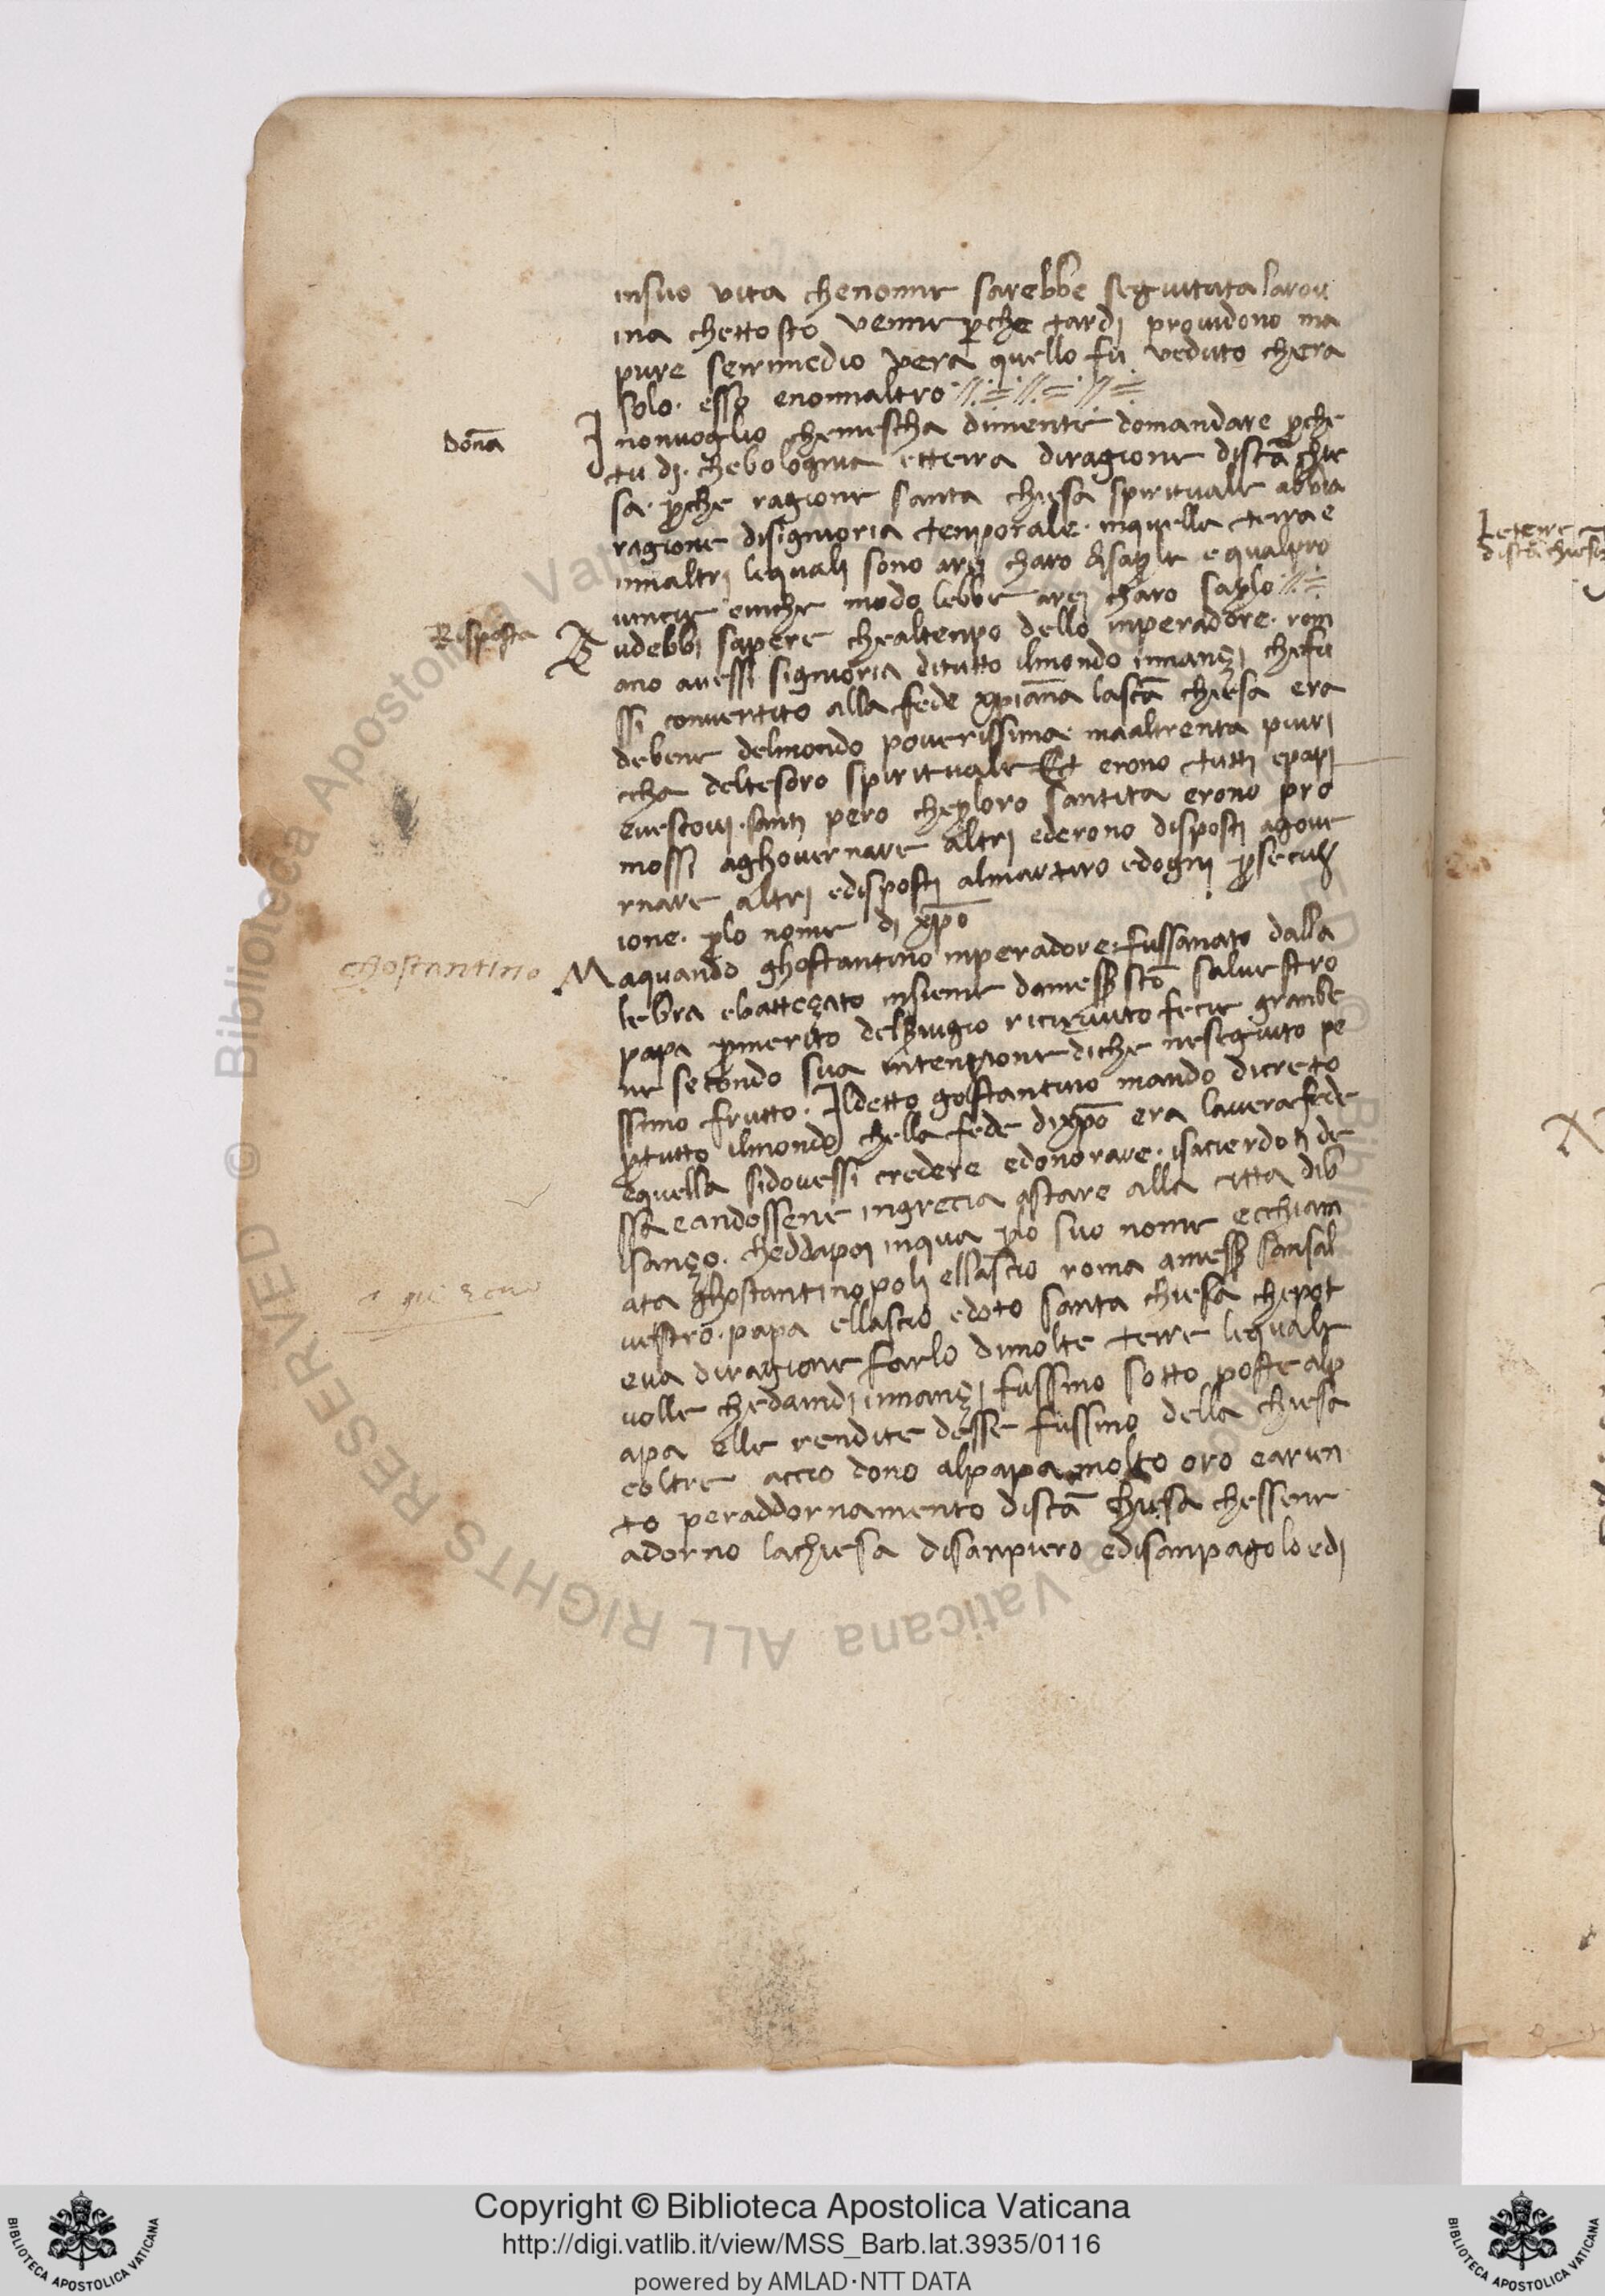 insuo vita chenonne sarebbe seguitata larou
ina chettosto venne perche tardi providono ma
pure senrimedio pera quello fu veduto chera
solo. esso enonnaltro
Dona
I nonvoglio chemescha dimente domandare perche
tu di. chebolognia etterra diragione discā chie
sa. perche ragione santa chiesa spirituale abbia
ragione disignioria temporale. inquella terra e
innaltri lequali sono arei charo disaperle e qualpro
vincie enche modo lebbe arei charo saperlo
Risposta
Tudebbi sapere chealtenpo dello inperadore. rom
ano avessi signioria ditutto ilmondo innanzi chefu
ssi convertito alla fede xpiāna lascā chiesa era
debene delmondo poverissima. maaltrenta piuri
ccha deltesoro spirituale Et erono tutti epapi
evescovi. santi pero cheperloro santita erono pro
mossi aghovernare altri ederono disposti agove
rnare altri edisposti almartiro edogni persecuz
ione. perlo nome di xpō
chostantino
Maquando ghostantino inperadore. fussanato dalla
lebra ebattezato insieme damesser scō salvestro
papa permerito delservigio ricievuto fecie granbe
ne secondo sua intenzione diche neseguito pe
ssimo frutto. Ildetto gostantino mando dicreto
pertutto ilmondo chella fede dixpō era laverafede
equella sidovessi credere edonorare. isacierdoti de
ssa eandossene ingrecia astare alla citta dib
isanzo. cheddapoi inqua perlo suo nome ecchiam
ata ghostantinopoli ellascio roma amesser sansal
vestro. papa ellascio edoto santa chiesa chepot
eva diragione farlo dimolte terre lequali
volle chedaindi innanzi fussino sotto poste alp
apa elle rendite desse fussino della chiesa
eoltre accio dono alpapa molto oro earien
to peraddornamento discā chiesa chessene
adorno lachiesa disanpiero edisanpagolo edi
Leterre
discā chiesa
© Biblioteca Apostolica Vaticana ALL RIGHTS RESERVED
Copyright © Biblioteca Apostolica Vaticana
http://digi.vatlib.it/view/MSS_Barb.lat.3935/0116
powered by AMLAD·NTT DATA
BIBLIOTECA APOSTOLICA VATICANA
BIBLIOTECA APOSTOLICA VATICANA